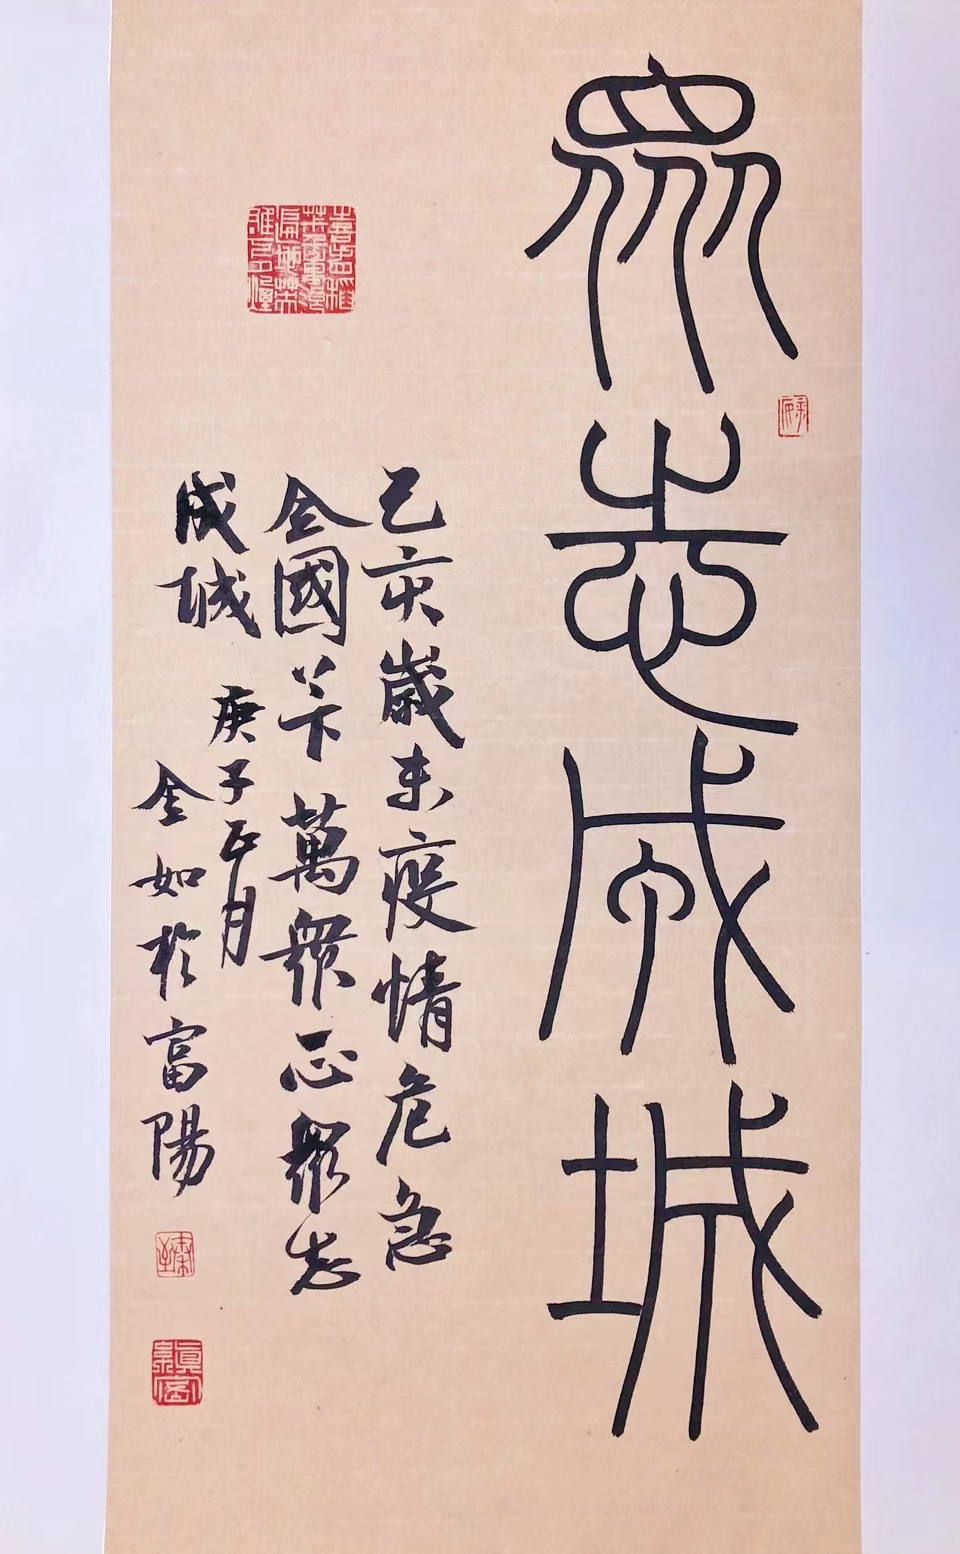 眾志成城
己亥歲末疫情危急
全國上下萬眾一心眾志
成城
庚子正月
金如於富陽